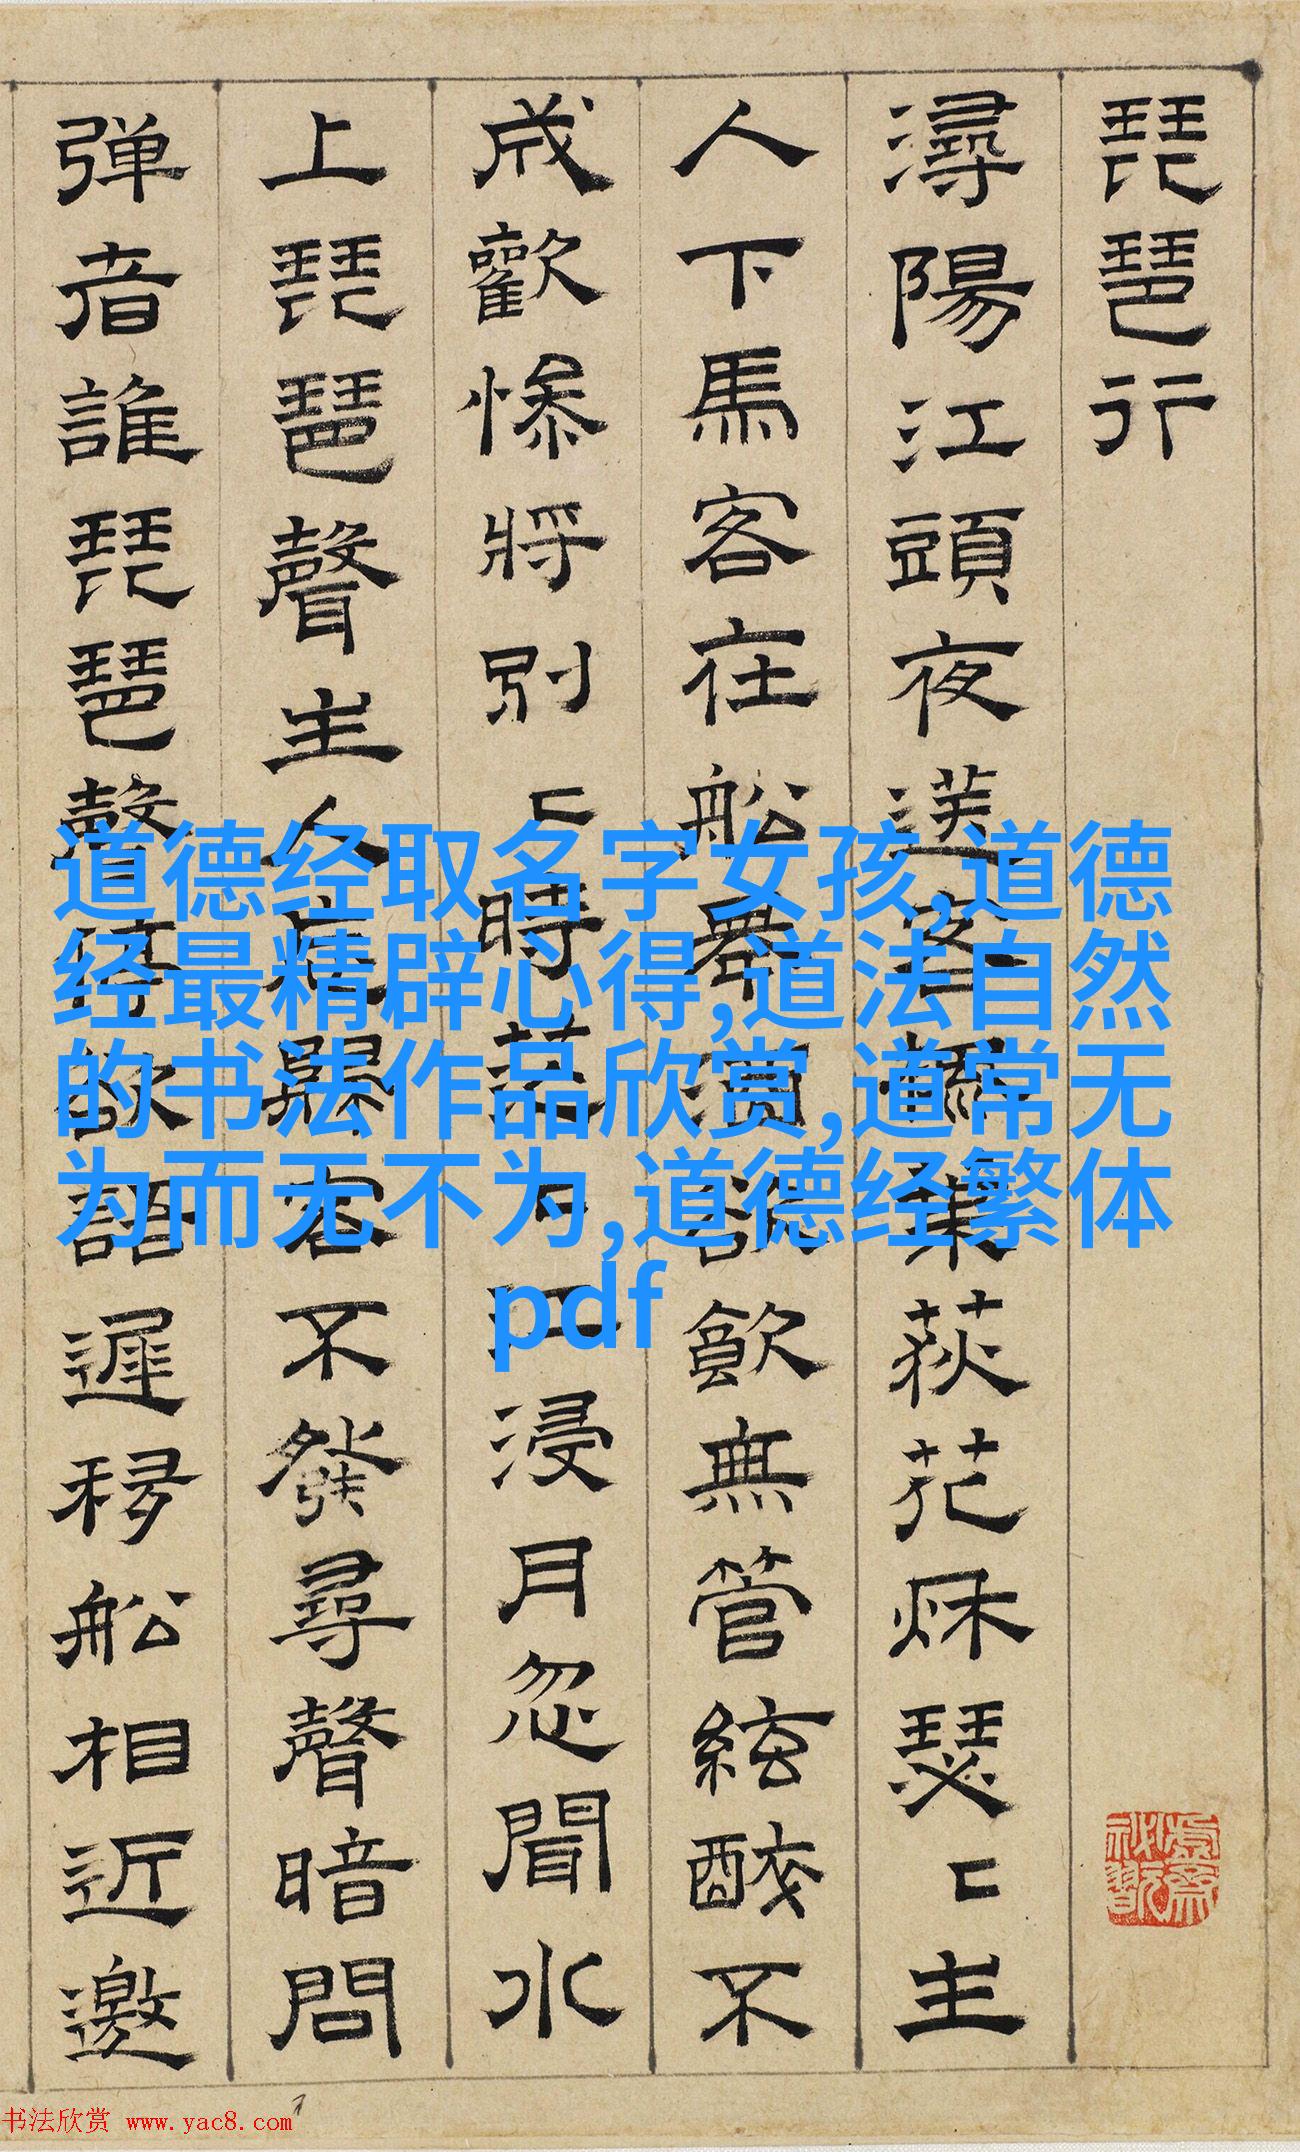 琵琶行
潯陽江頭夜送客楓葉荻花秋瑟〻主
人下馬客在船舉酒欲飲無管絃醉不
成歡慘將別〻時茫〻江浸月忽聞水
上琵琶聲主人忘歸客不發尋聲暗問
弹者誰琵琶聲停欲語遲移船相近邀
道德经取名字女孩,道德
经最精辟心得,道法自然
的书法作品欣赏,道常无
为而无不为,道德经繁体
pdf
书法欣赏 www.yac8.com